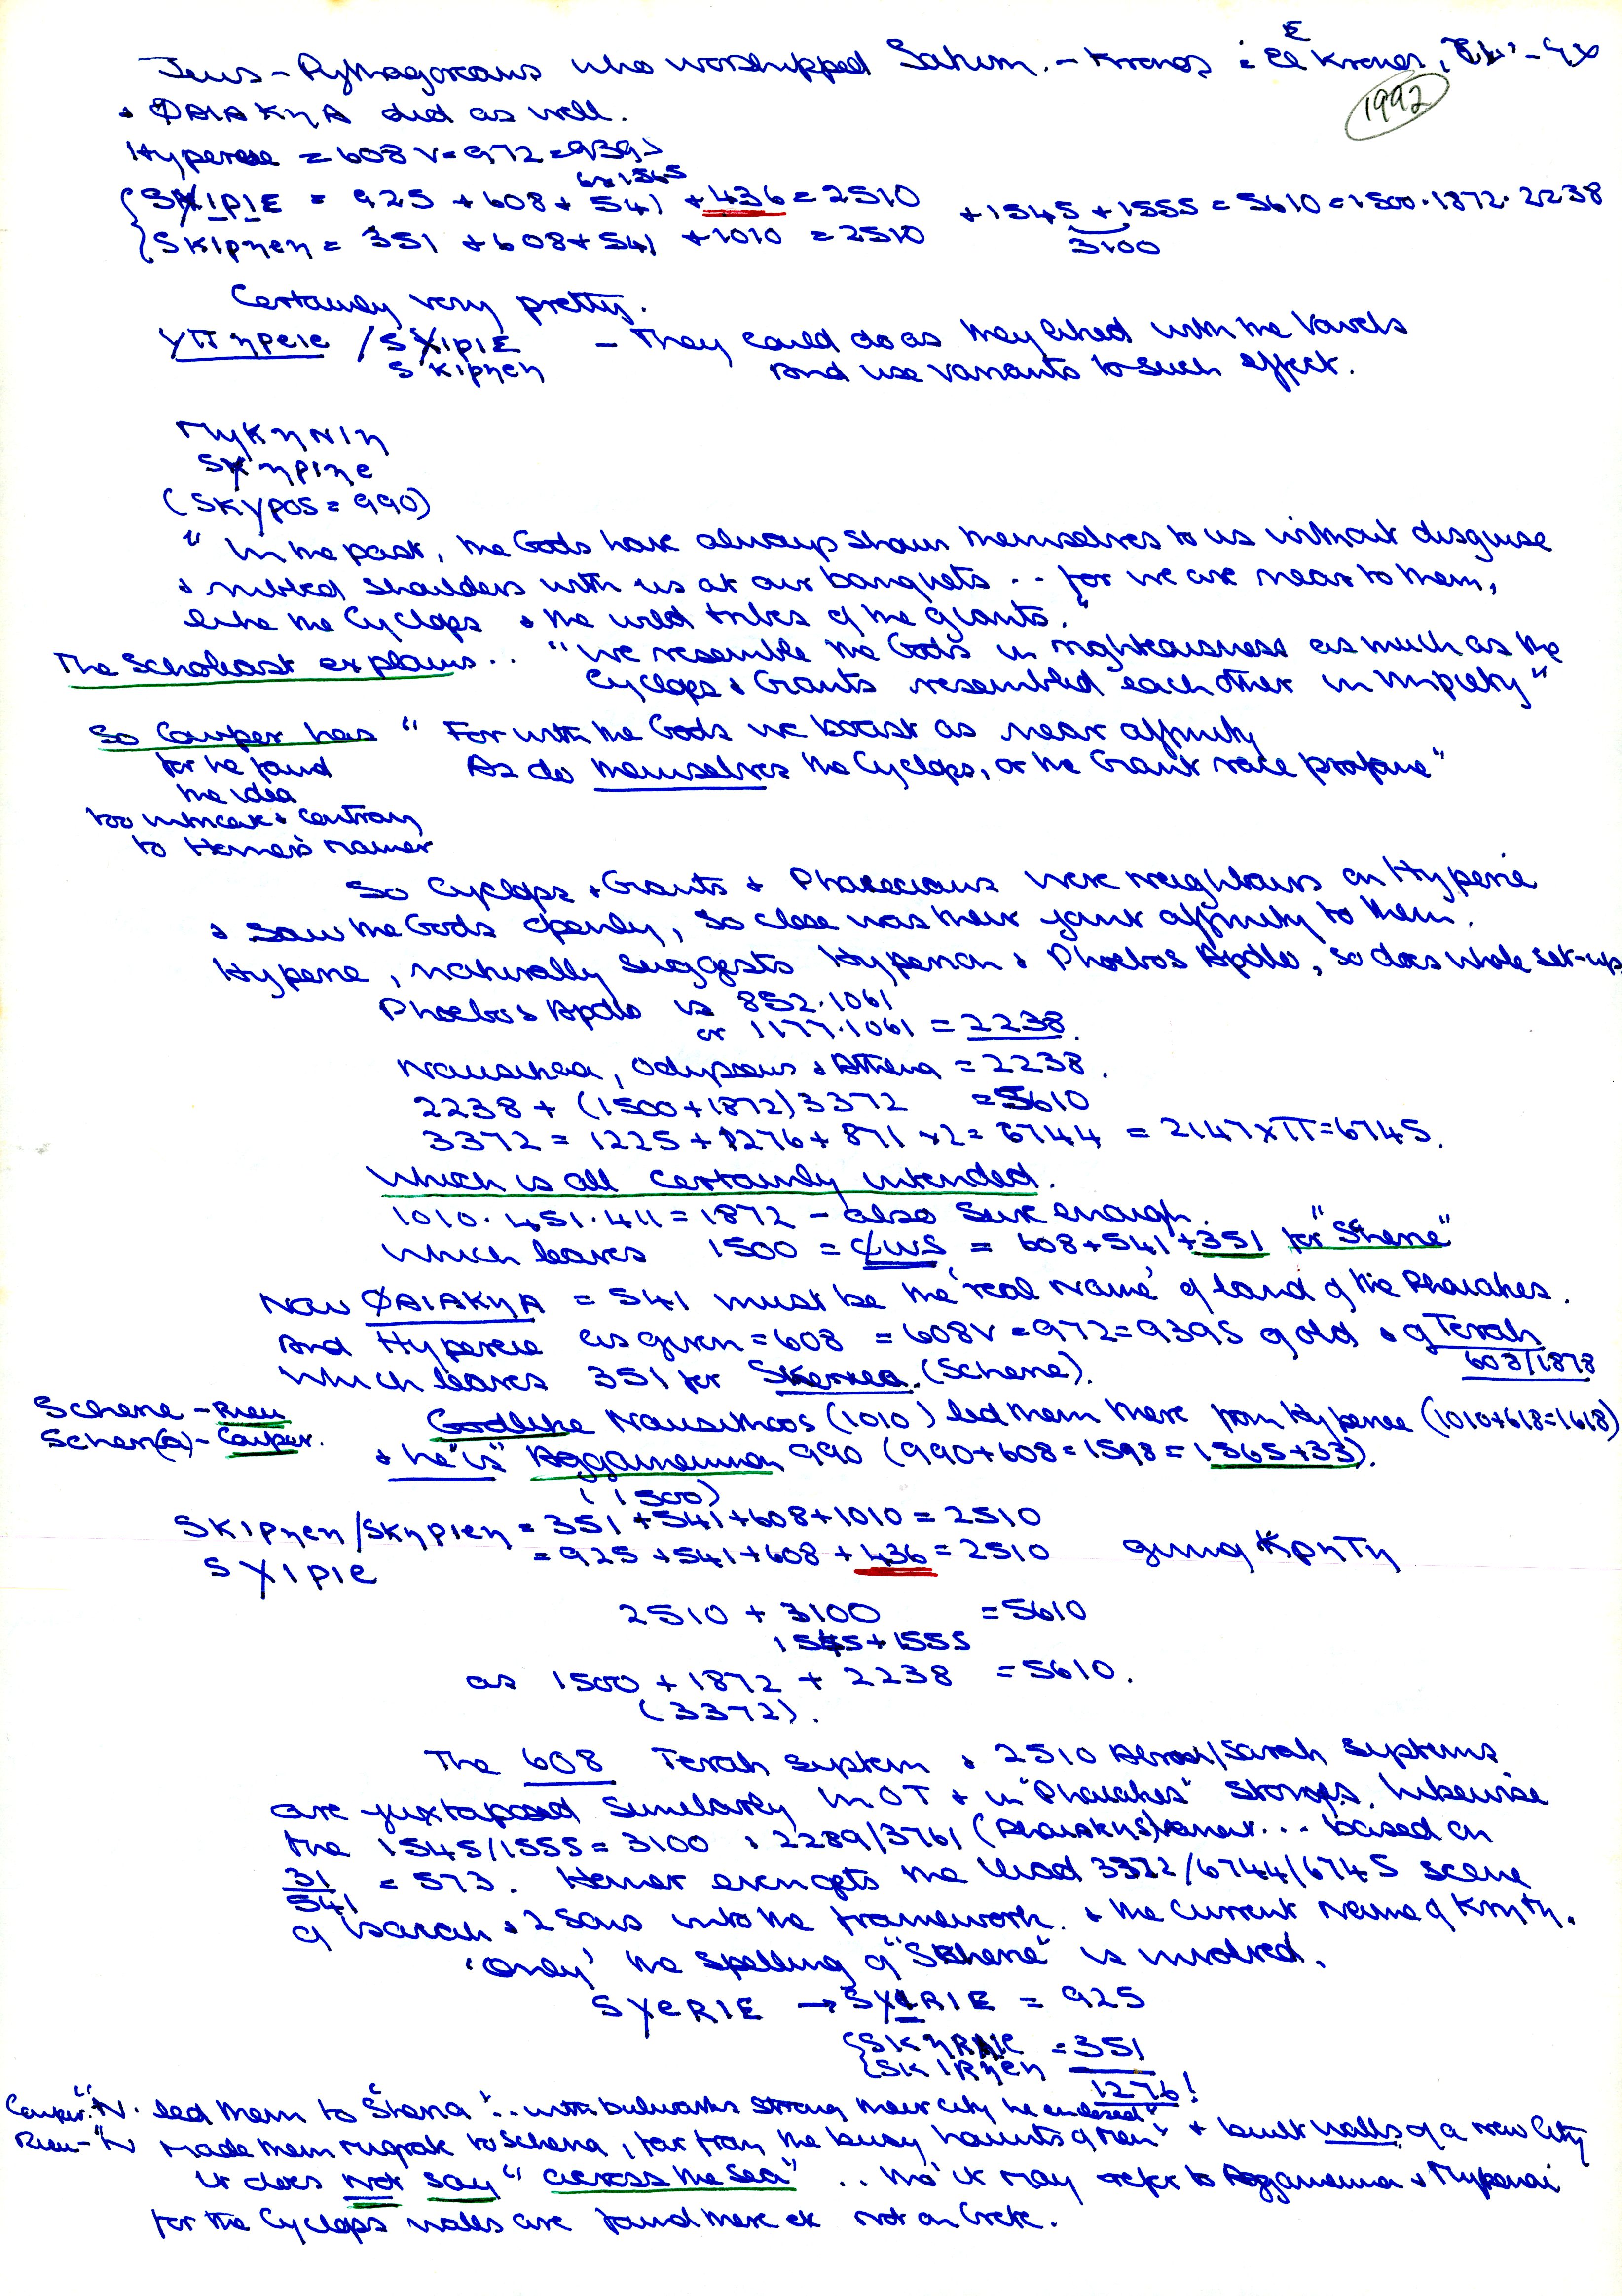 E
Jews - Pythagoreans who worshipped Saturn. - Kronos = El Kronos,
1992
+ ΦΑΙΑΚηΑ did as well.
Hyperese = 608 V = 972 = 939
6 = 1545
{SXIPIE = 925 + 608 + 541 + 436 = 2510 + 1545 + 1555 = 5610 = 1500 · 1872 · 2238
{SKIPηεη = 351 + 608 + 541 + 1010 = 2510 3100
Certainly very pretty.
YΠηρειε / SXIPIE - They could do as they liked with the Vowels
SKIPηεη and use variants to such effect.
MyKηNIη
SKηριηε
(SKYPOS = 990)
"In the past, the Gods have always shown themselves to us without disguise
+ rubbed shoulders with us at our banquets .. for we are near to them,
like the Cyclops + the wild tribes of the giants."
The Scholiast explains .. "We resemble the Gods in righteousness as much as the
Cyclops + Giants resembled each other in impiety"
So Cowper has "For with the Gods we boast as near affinity
for he found As do themselves the Cyclops, or the Giant race profane"
the idea
too intricate + contrary
to Homer's manner
So Cyclops + Giants + Phaeacians were neighbours on Hyperie
+ saw the Gods openly, so close was their joint affinity to them.
Hyperie, naturally suggests Hyperion + Phoebos Apollo, so does whole set-up.
Phoebos Apollo is 852.1061
or 1177.1061 = 2238.
Nausikaa, Odysseus + Athena = 2238.
2238 + (1500 + 1872) 3372 = 5610
3372 = 1225 + 1276 + 871 x2 = 6744 = 2147 x π = 6745.
Which is all certainly intended.
1010 . 451 . 411 = 1872 - also sure enough.
Which leaves 1500 = = 608 + 541 + 351 for "Skene"
Now ΦΑΙΑΚηΑ = 541 must be the 'real name' of land of the Phaiakes.
And Hyperese as given = 608 = 608V = 972 = 9395 gold + of Terah
603/1878
Which leaves 351 for Skerrea. (Scherie).
Scherie - Rieu Godlike Nausithoos (1010) led them there from Hyperiee (1010 + 618 = 1618)
Scheri(a) - Cowper. + he "is" Aggamemnon 990 (990 + 608 = 1598 = 1565 + 33).
(1500)
SKIPηεη/SKηPIεη = 351 + 541 + 608 + 1010 = 2510
SXIPIE = 925 + 541 + 608 + 436 = 2510 giving KρηTη
2510 + 3100 = 5610
1545 + 1555
as 1500 + 1872 + 2238 = 5610.
(3372).
The 608 Terah system + 2510 Abram/Sarah systems
are juxtaposed similarly in OT + in "Phaiakes" stories. Likewise
the 1545/1555 = 3100 + 2289/3761 ... based on
31/541 = 573. Homer even gets the 3372/6744/6745 scene
of Isarah + 2 sons into the framework. + the current name of Krητη.
'Only' the spelling of "Skherie" is involved.
SXERIE → SXIRIE = 925
{SKηRIIE = 351
{SKIRηεη
1276!
Cowper: "N. led them to Skeria" .. with bulwarks strong their city he enclosed"
Rieu - "N made them migrate to Scheria, far from the busy haunts of men" + built walls of a new City
It does not say "across the sea" .. tho' it may refer to Aggamemna + Mykenai
for the Cyclops walls are found there etc not on Crete.